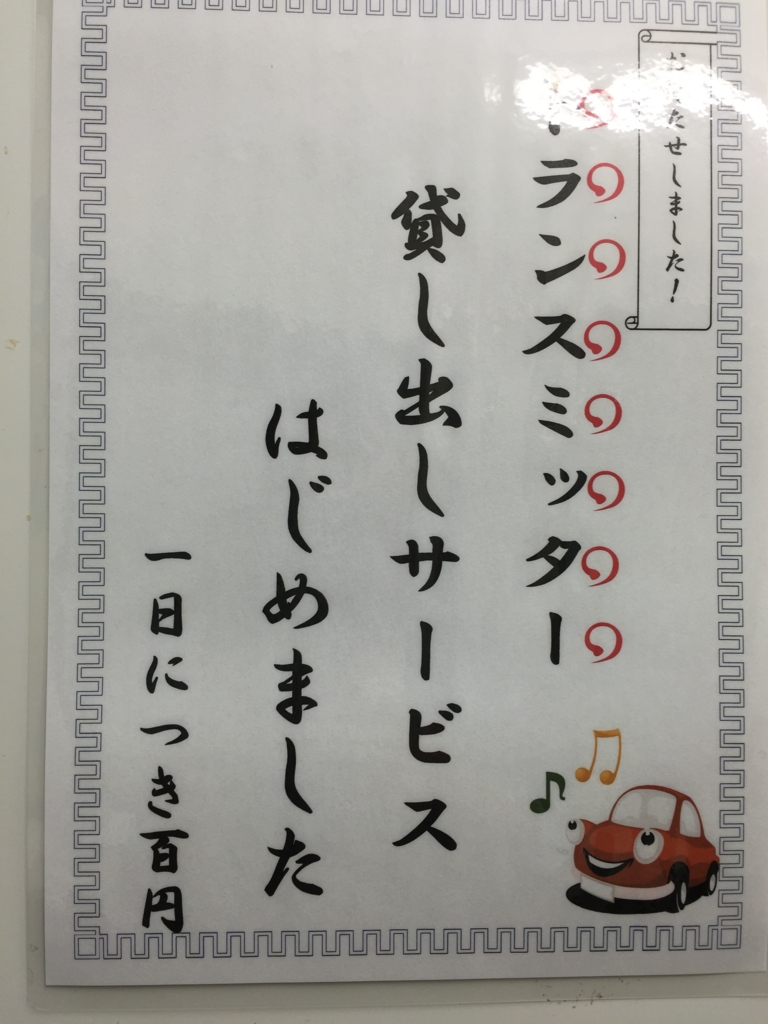 おまたせしました！
トランスミッター
貸し出しサービス
はじめました
一日につき百円